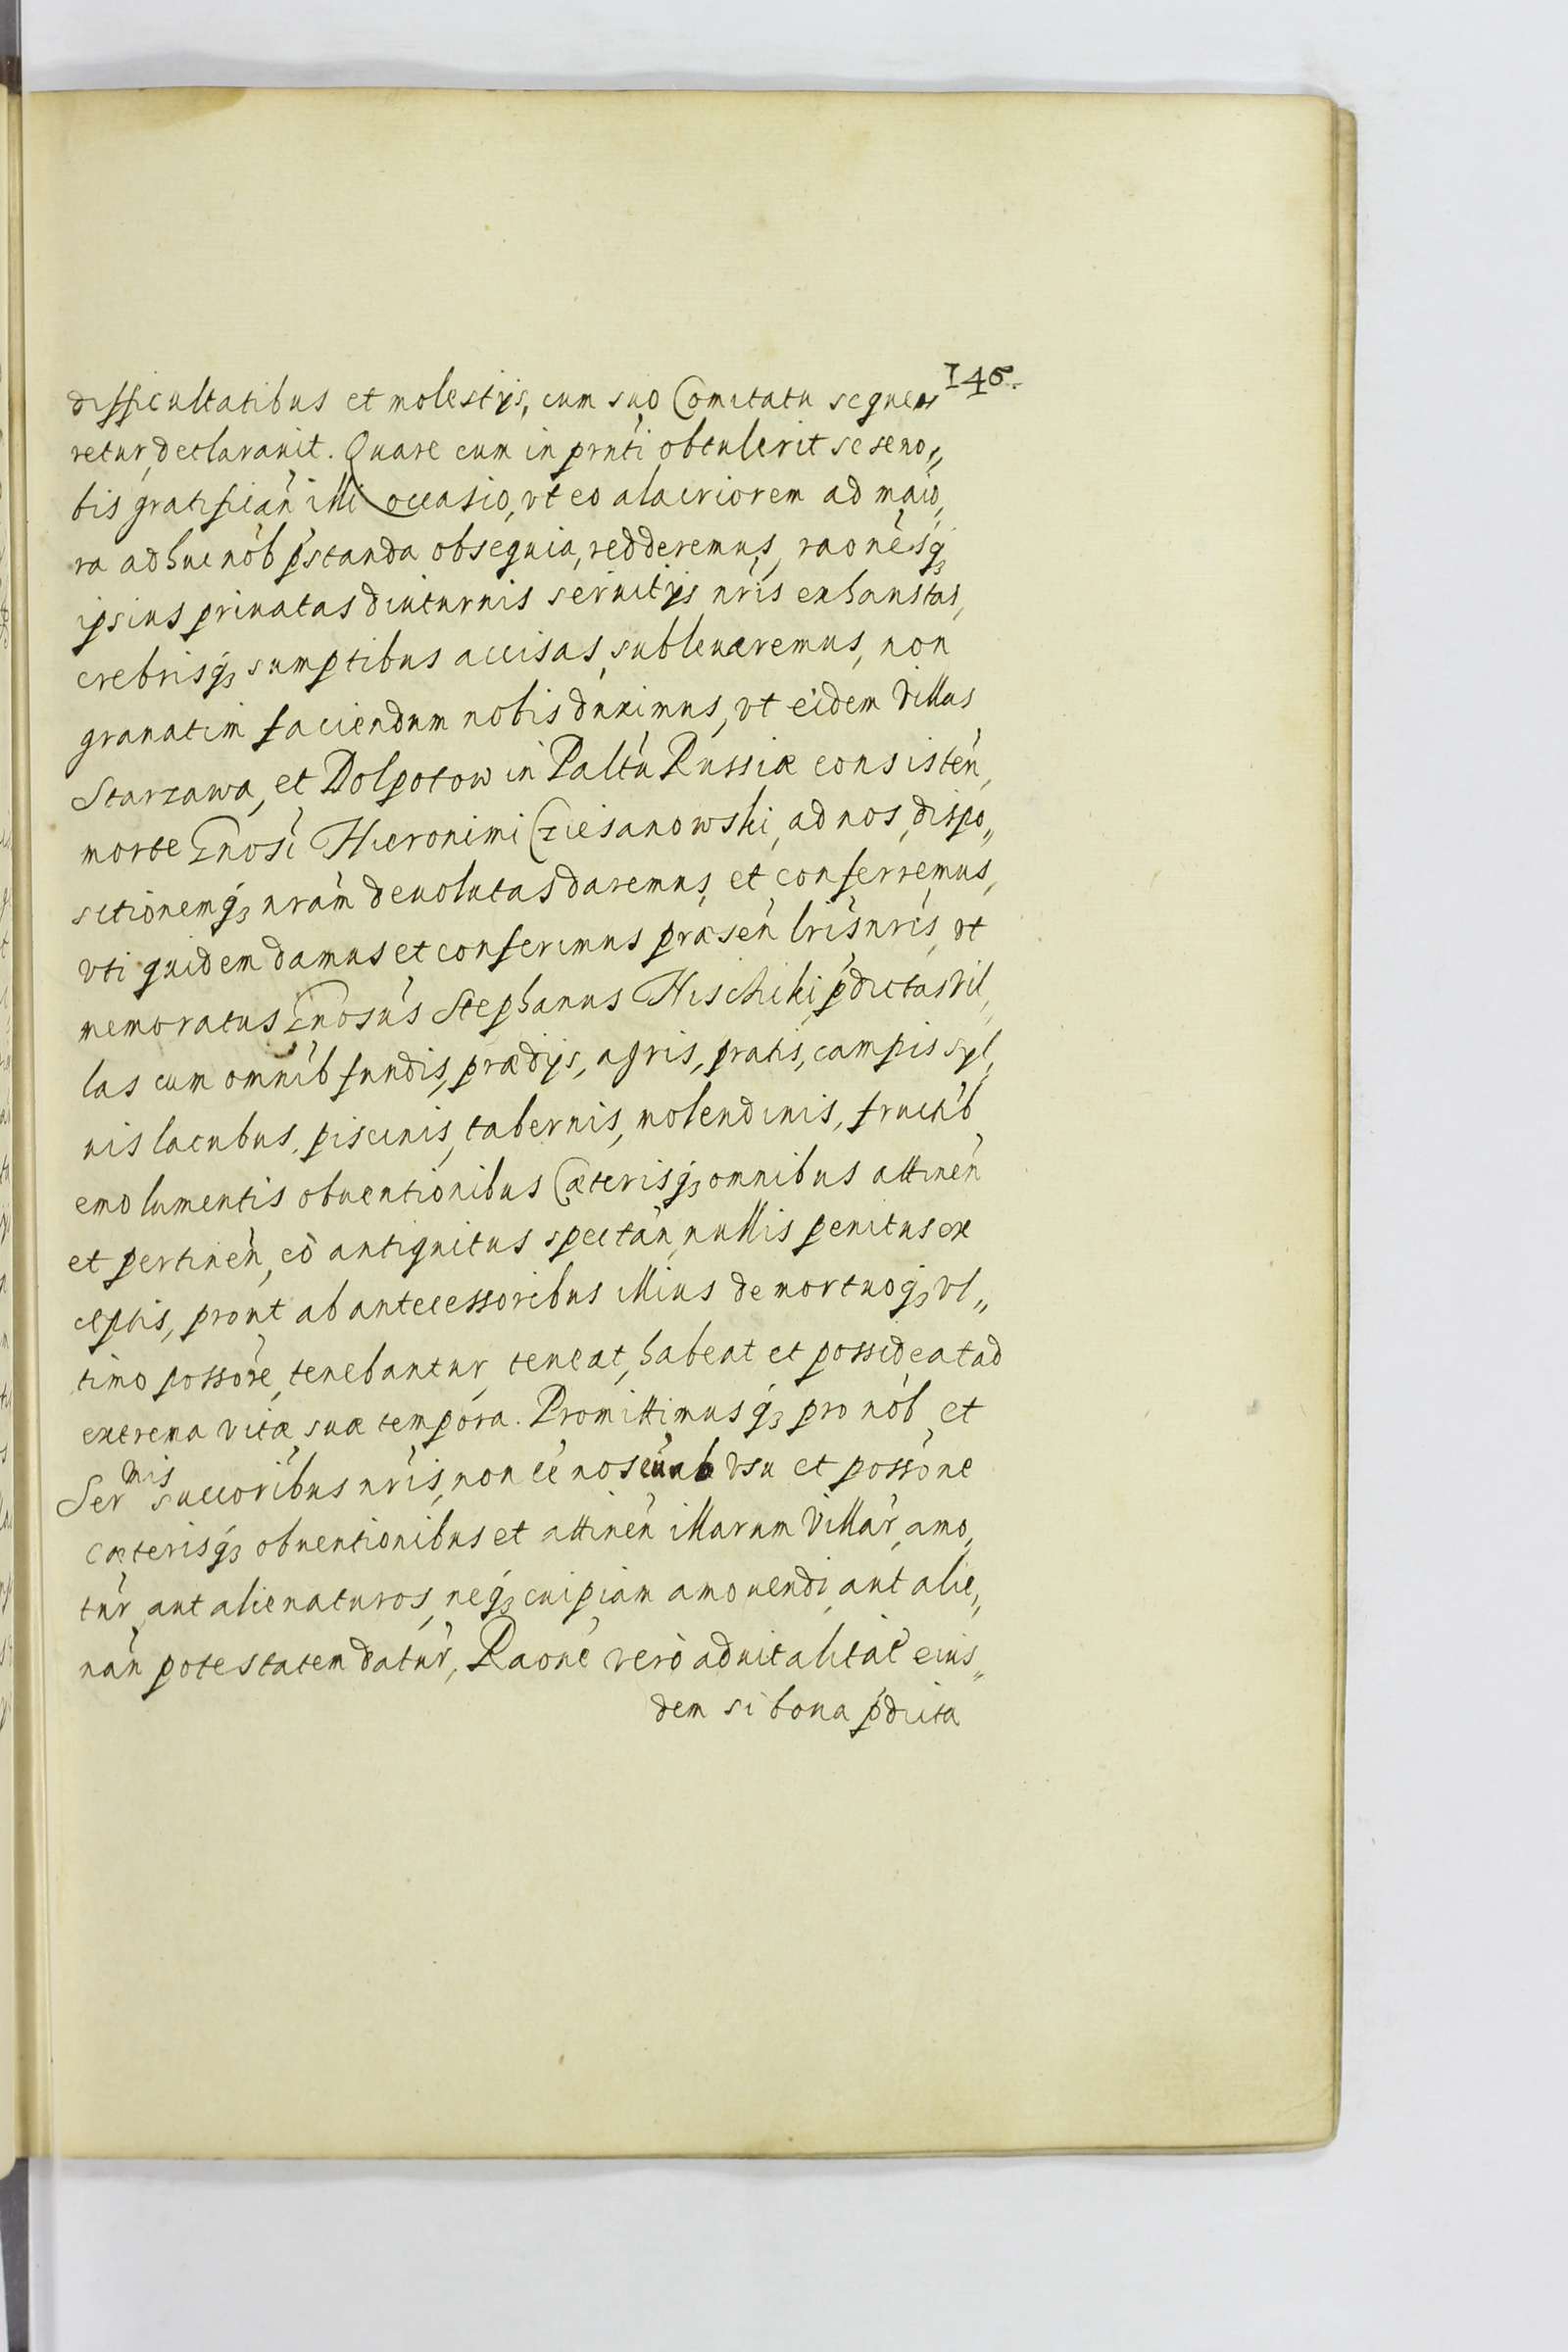 146.
difficultatibus et molestijs, cum suo Comitatu seque„
retur, declarauit. Quare cum in prnti obtulerit sese no„
bis gratifican̄ illi occasio, vt eo alacriorem ad maio„
ra adhuc nob p̄standa obsequia, redderemus, raonesq₃
ipsius priuatas diuturnis seruitijs nris exhaustas,
crebrisq₃ sumptibus accisas, subleuaremus, non
grauatim faciendum nobis duximus, vt eidem Villas
Starzawa, et Dolpotow in Paltu Russiæ consisten,
morte Gnosi Hieronimi Cziesanowski, ad nos, dispo„
sitionemq₃ nram deuolutas daremus, et conferremus,
vti quidem damus et conferimus præsen lris nris, vt
memoratus Gnosus Stephanus Hischiki, p̄dictas Vil„
las cum omnib fundis, prædijs, agris, pratis, campis syl„
uis lacubus, piscinis, tabernis, molendinis, fructib
emolumentis obuentionibus Cæterisq₃ omnibus attinen
et pertinen, eò antiquitus spectan, nullis penitus ex
ceptis, prout ab antecessoribus illius demortuoq₃ vl„
timo possore, tenebantur, teneat, habeat et possideat ad
extrema vitæ suæ tempora. Promittimusq₃ pro nob et
Ser^mis succoribus nris, non ee nos eum ab vsu et possone
cæterisq₃ obuentionibus et attinen illarum Villar, amo„
tur, aut alienaturos, neq₃ cuipiam amouendi, aut alie„
nan potestatem datur, Raone verò aduitalitat eius„
dem si bona p̄dicta